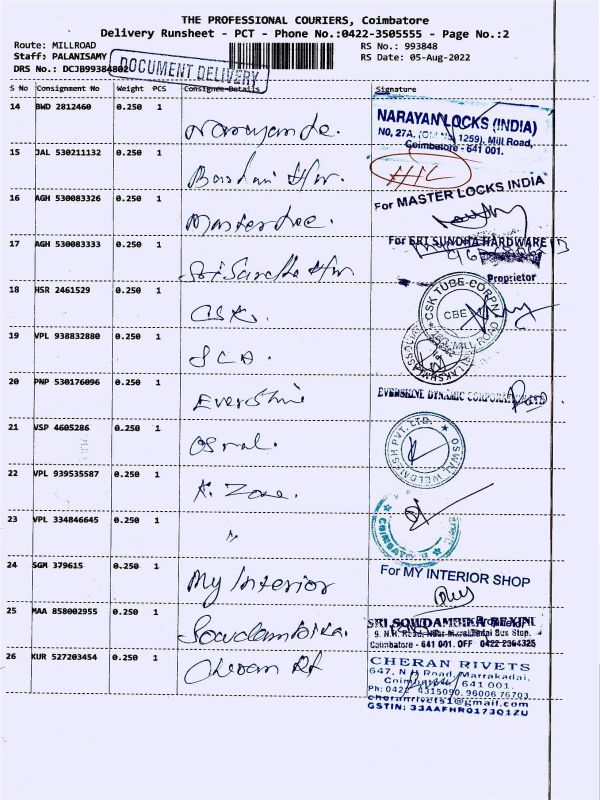 THE PROFESSIONAL COURIERS, Coimbatore
Delivery Runsheet - PCT - Phone No.:0422-3505555 - Page No.:2
Route: MILLROAD
RS No.: 993848
Staff: PALANISAMY
RS Date: 05-Aug-2022
DRS No.: DCJB99384802
DOCUMENT DELIVERY
S No Consignment No Weight PCS Consignee Details Signature
14 BWD 2812460 0.250 1
NARAYAN LOCKS (INDIA)
NO, 27A, 1259), Mill Road,
Coimbatore - 641 001.
15 JAL 530211132 0.250 1
16 AGH 530083326 0.250 1
For MASTER LOCKS INDIA
17 AGH 530083333 0.250 1 Sri Sundha
For SRI SUNDHA HARDWARE
Proprietor
18 HSR 2461529 0.250 1 CSK
CSK TUBE CORPN
CBE
MILL ROAD
19 VPL 938832880 0.250 1
20 PNP 530176096 0.250 1 Evershine
EVERSHINE DYNAMIC CORPORATION
21 VSP 4605286 0.250 1
OSWAL WELDMESH PVT. LTD.
22 VPL 939535587 0.250 1 A. Zone.
23 VPL 334846645 0.250 1 "
COIMBATORE
24 SGM 379615 0.250 1 My Interior
For MY INTERIOR SHOP
25 MAA 858002955 0.250 1 Sowdambika.
SRI SOWDAMBIKA
Coimbatore - 641 001. OFF 0422 2364325
26 KUR 527203454 0.250 1 Cheran
CHERAN RIVETS
647, N H Road, Marrakadai,
Coimbatore 641 001.
Ph: 0422 4315090, 96006 76703
cheranrivets1@gmail.com
GSTIN: 33AAFHR0173Q1ZU